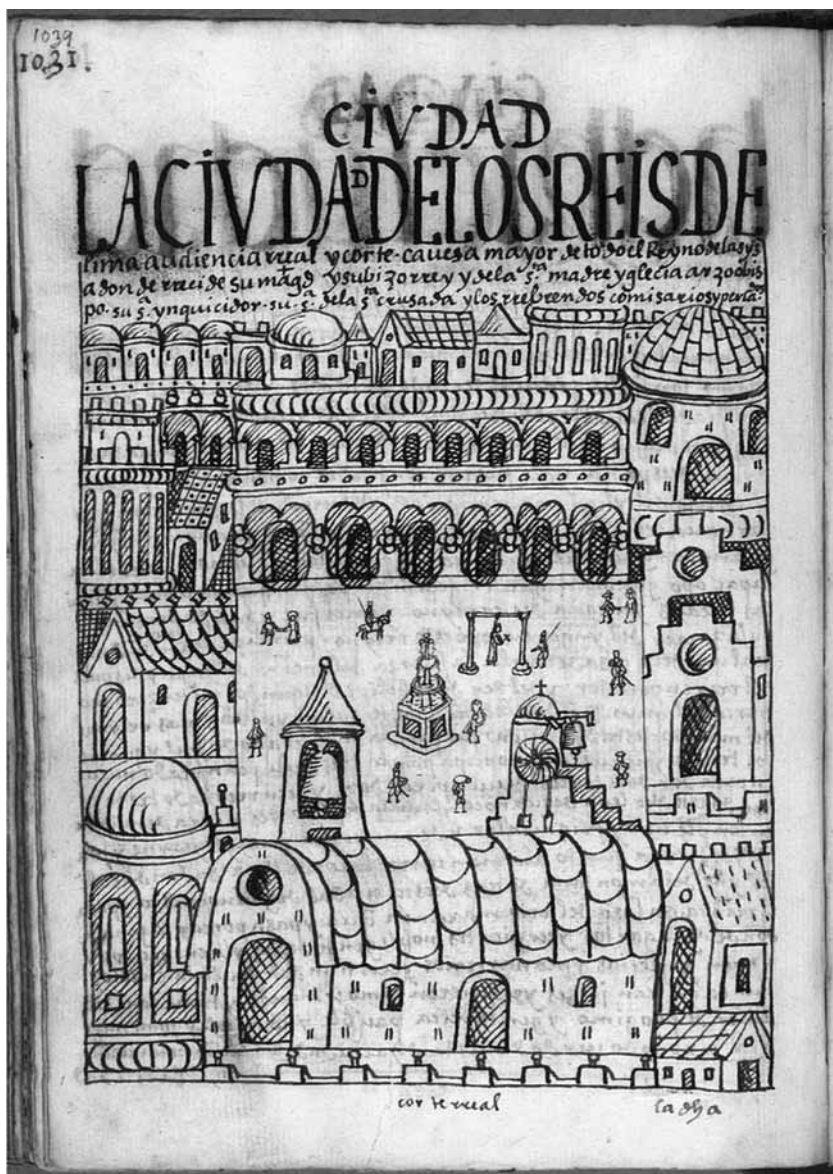 1039
1031.
CIVDAD
LA CIVDAD DE LOS REIS DE
lima audiencia rreal y corte. cauesa mayor de todo el Reyno de las yⁿs
adonde rreci de su mag.d y su bizorrey y de la s.ta madre yglecia arzobis
po. su s.a ynquicidor. su s.a de la s.ta crusada y los rrebrendos comisarios y perlados
corte rreal
la dha